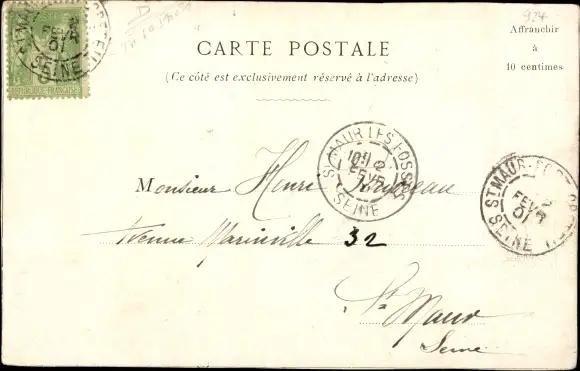 924
Affranchir
à
10 centimes
CARTE POSTALE
(Ce côté est exclusivement réservé à l'adresse)
ST MAUR LES FOSSÉS
2
FEVR
01
SEINE
Monsieur Henri
Avenue Marinville 32
St Maur
Seine
ST MAUR
2
FEVR
01
SEINE
FEVR
01
SEINE
RÉPUBLIQUE FRANÇAISE